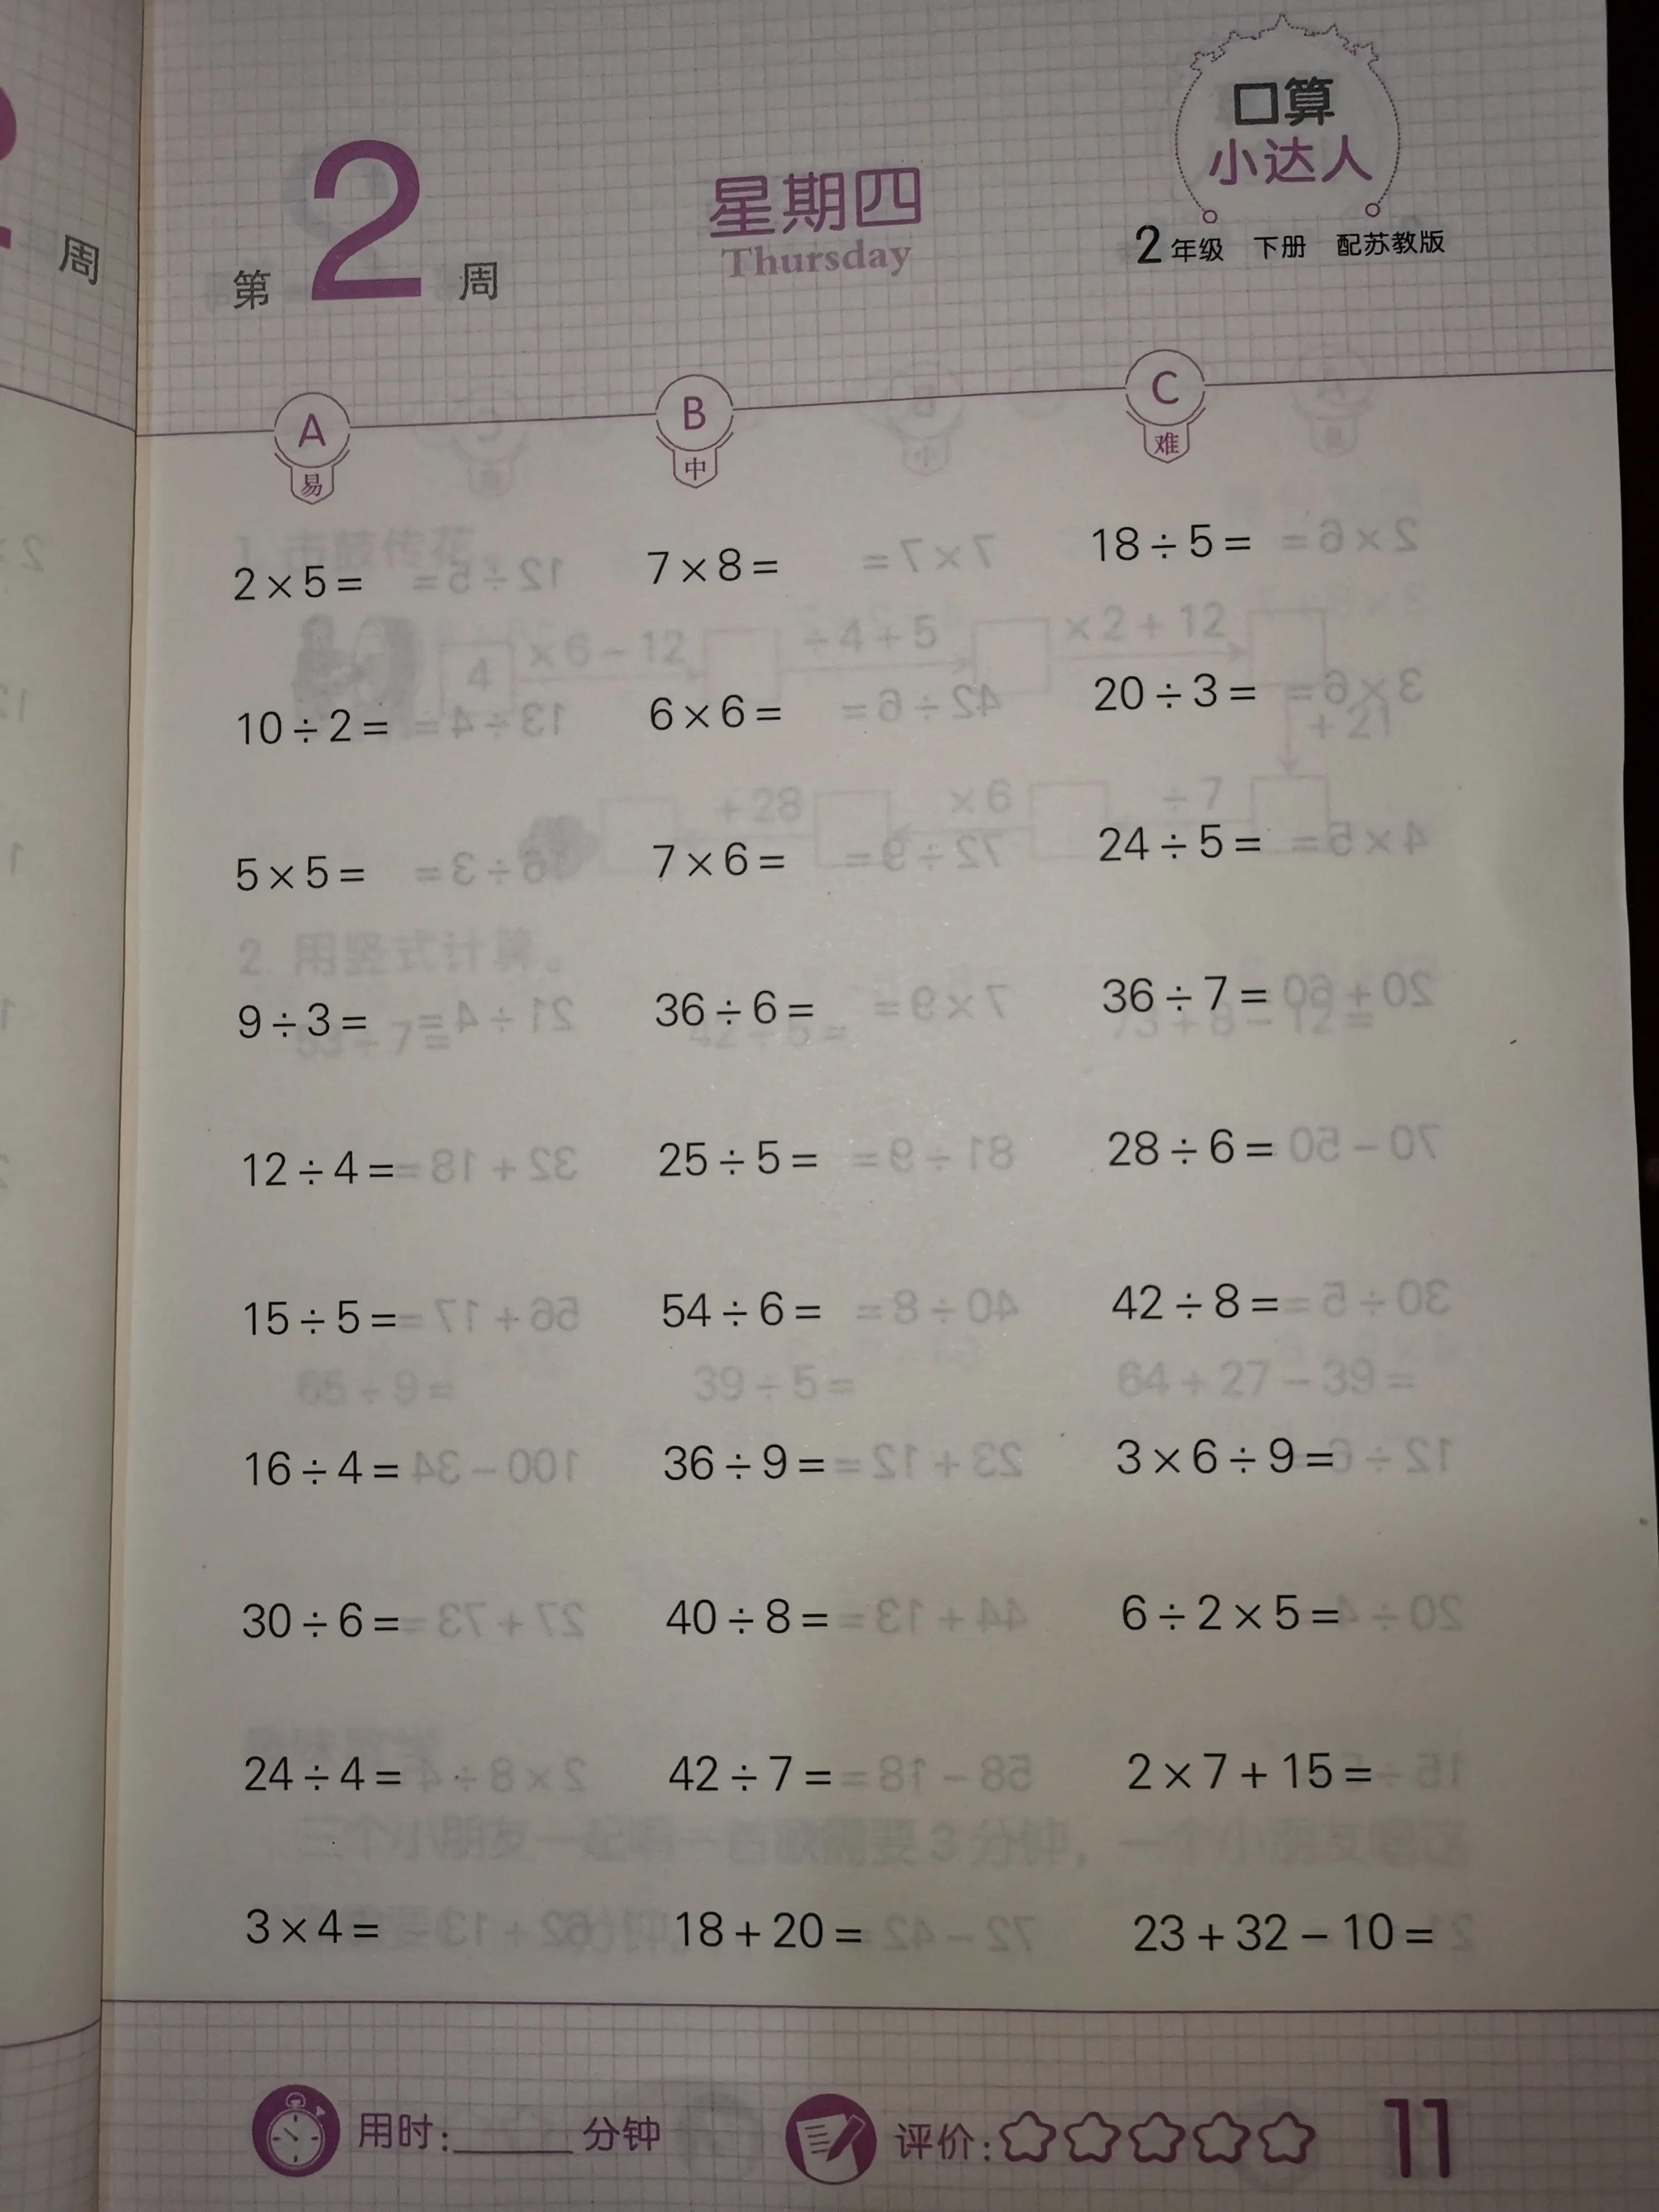 周
第2周
星期四
Thursday
口算
小达人
2年级 下册 配苏教版
A
易
B
中
C
难
2×5= 7×8= 18÷5=
10÷2= 6×6= 20÷3=
5×5= 7×6= 24÷5=
9÷3= 36÷6= 36÷7=
12÷4= 25÷5= 28÷6=
15÷5= 54÷6= 42÷8=
16÷4= 36÷9= 3×6÷9=
30÷6= 40÷8= 6÷2×5=
24÷4= 42÷7= 2×7+15=
3×4= 18+20= 23+32-10=
用时:______分钟 评价:☆☆☆☆☆ 11